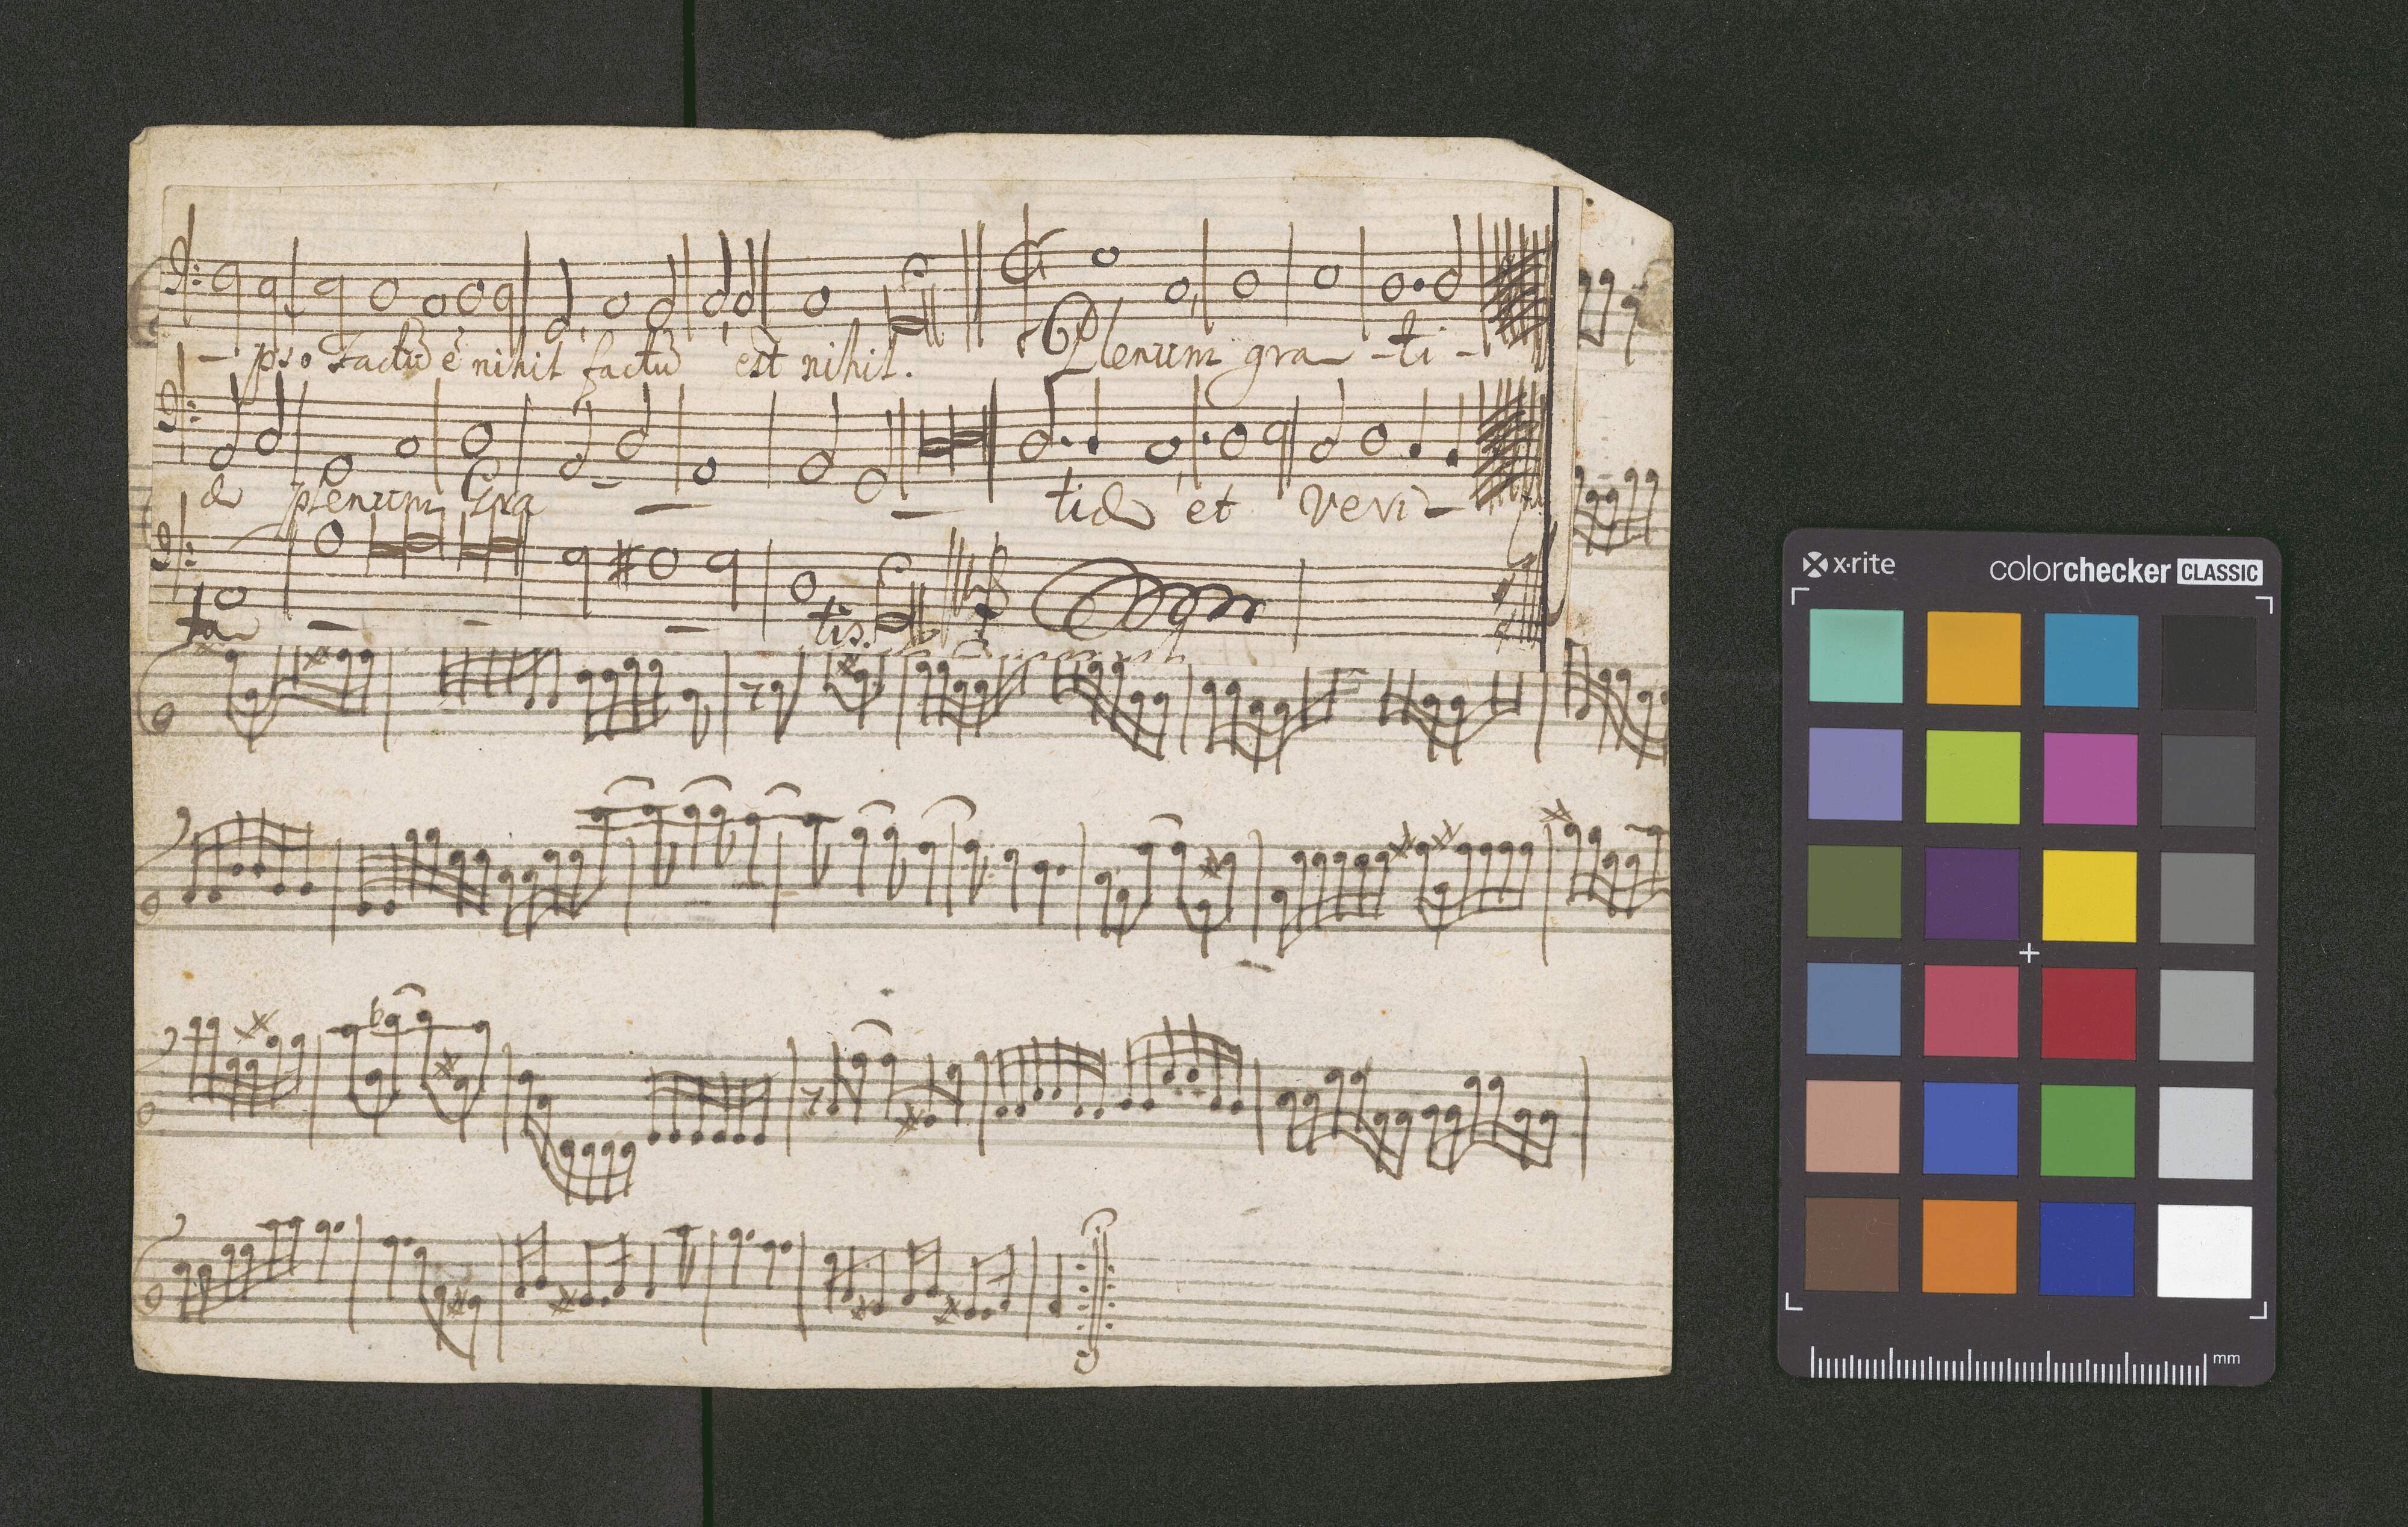 - pso factũ ẽ nihil factũ est nihil. Plenum gra - ti -
æ plenum Gra — — tiæ et veri -
ta — — — tis.
x·rite colorchecker CLASSIC
mm